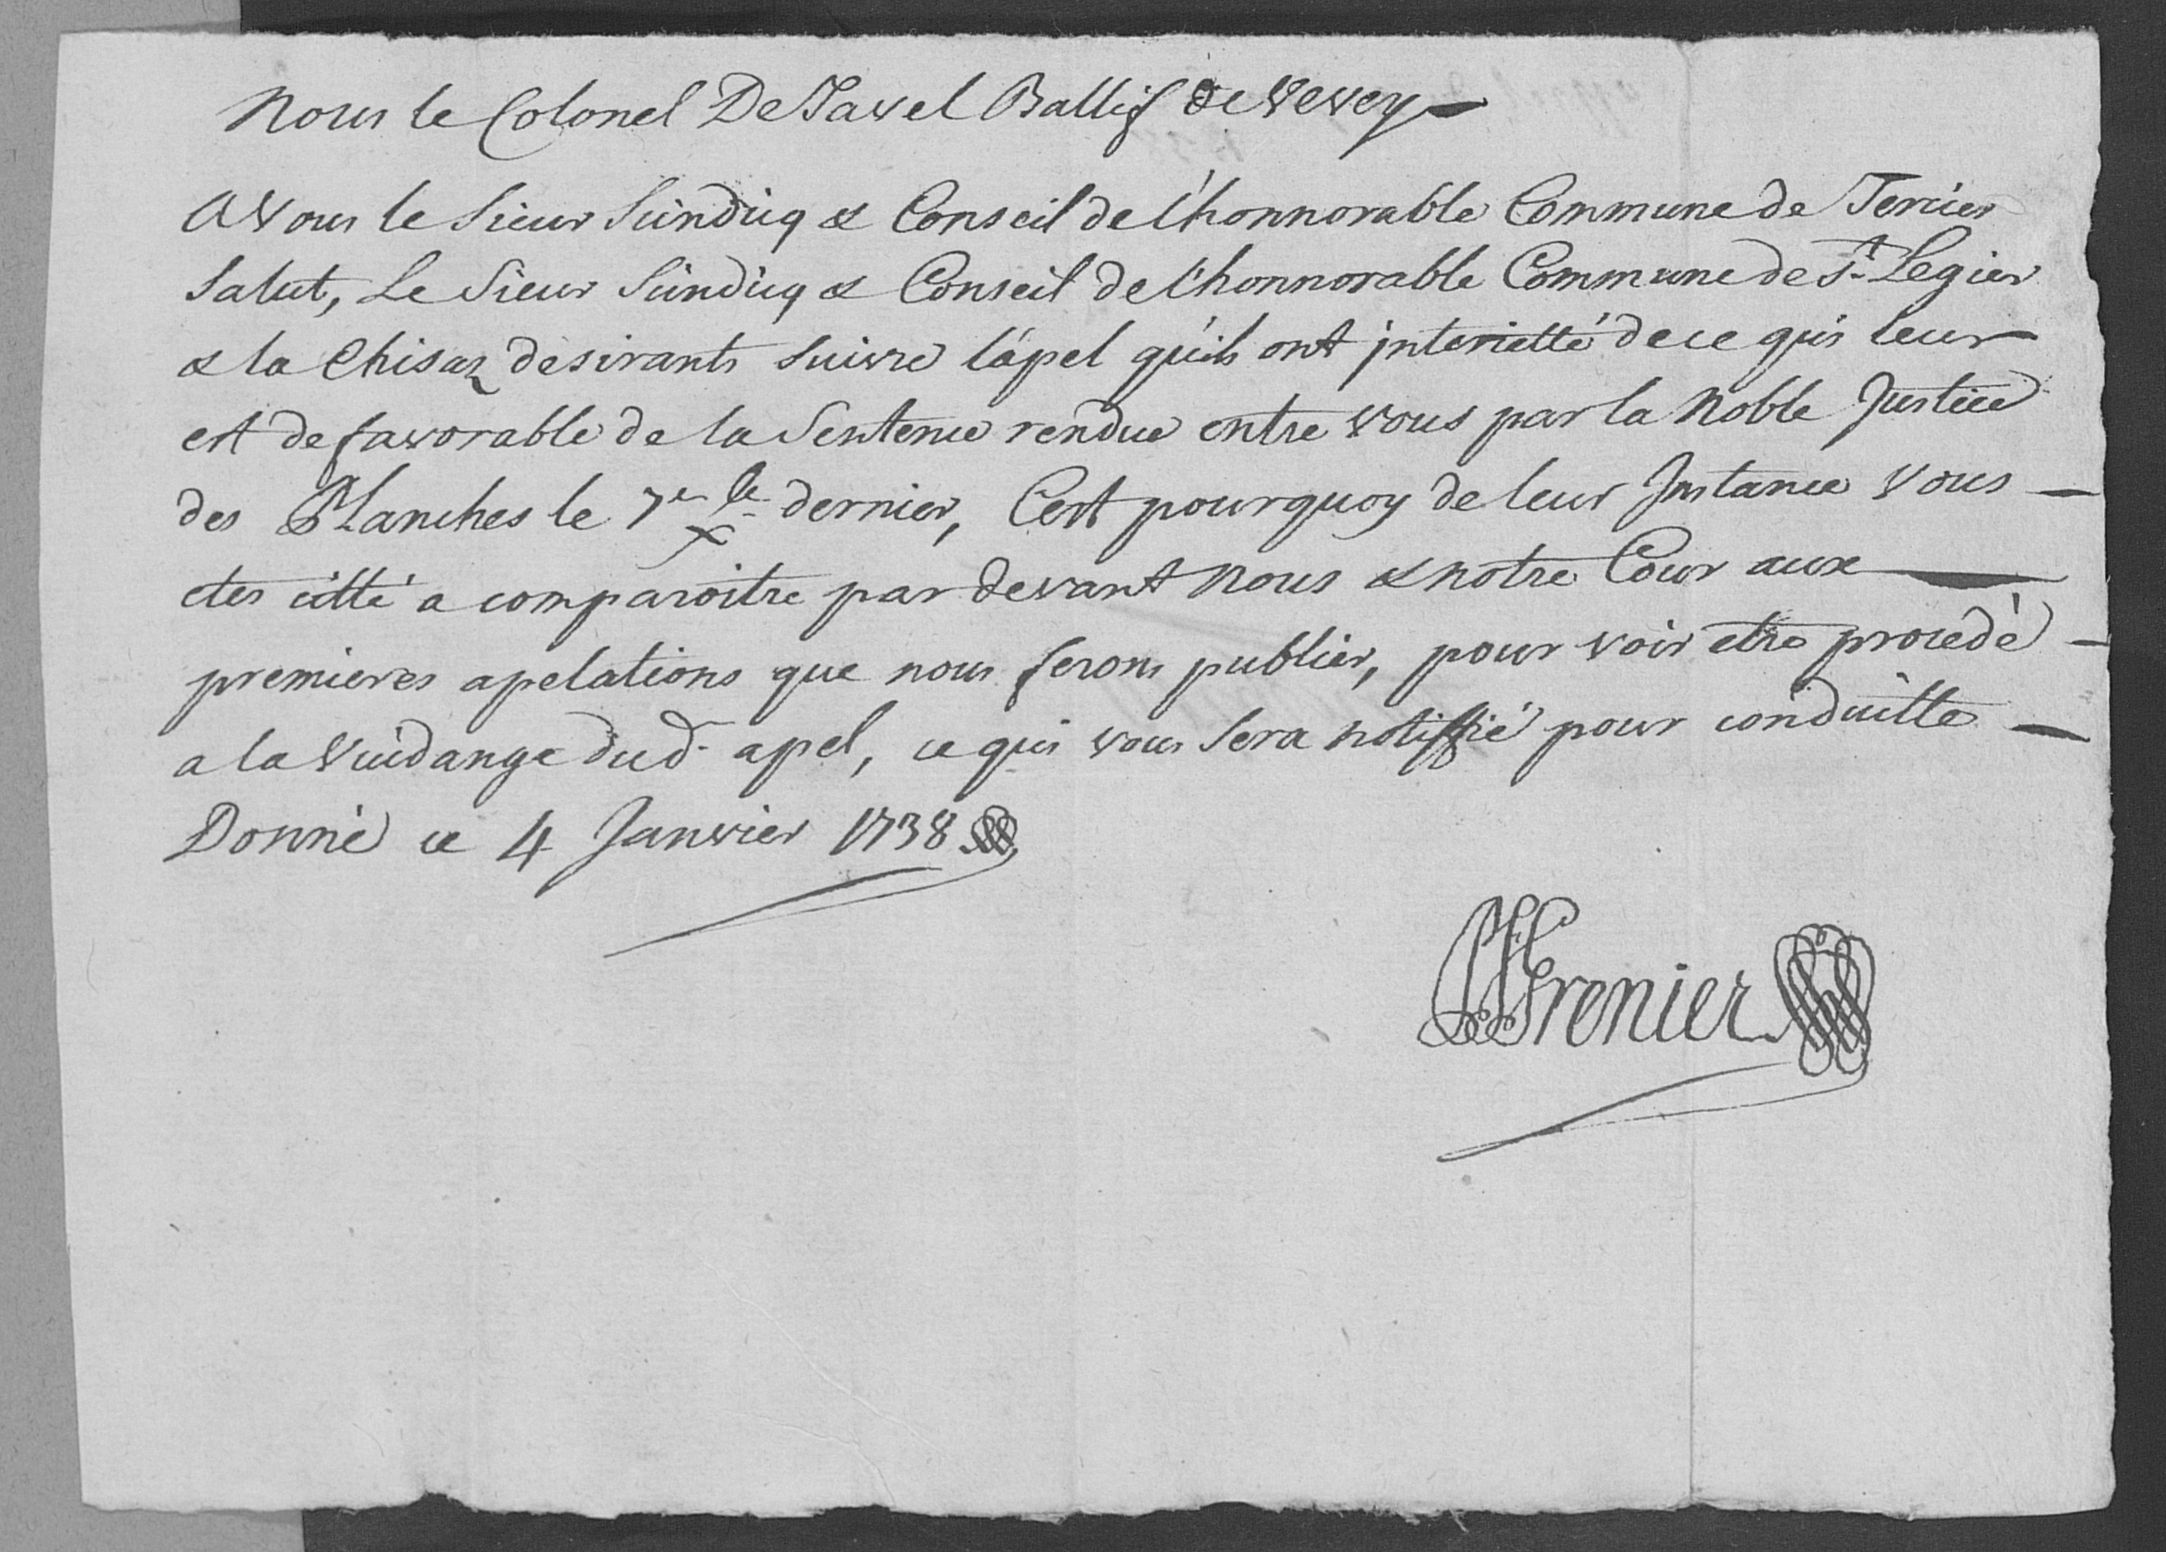 Nous le Colonel De Tavel Ballif de Vevey
A Vous le Sieur Sindicq & Conseil de l'honnorable Commune de Tercier
Salut, Le Sieur Sindicq & Conseil de l'honnorable Commune de St. Legier
& la Chisaz desirants suivre l'apel qu'ils ont interietté de ce qui leur
est defavorable de la Sentence rendue entre vous par la Noble Justice
des Planches le 7e Xbre dernier, C'est pourquoy de leur Instance Vous
etes citté a comparoitre par devant Nous & notre Cour aux
premieres apelations que nous ferons publier, pour voir etre procedé
a la Vuidange dud. apel, ce qui vous sera notiffié pour conduitte
Donné ce 4 Janvier 1738
Grenier